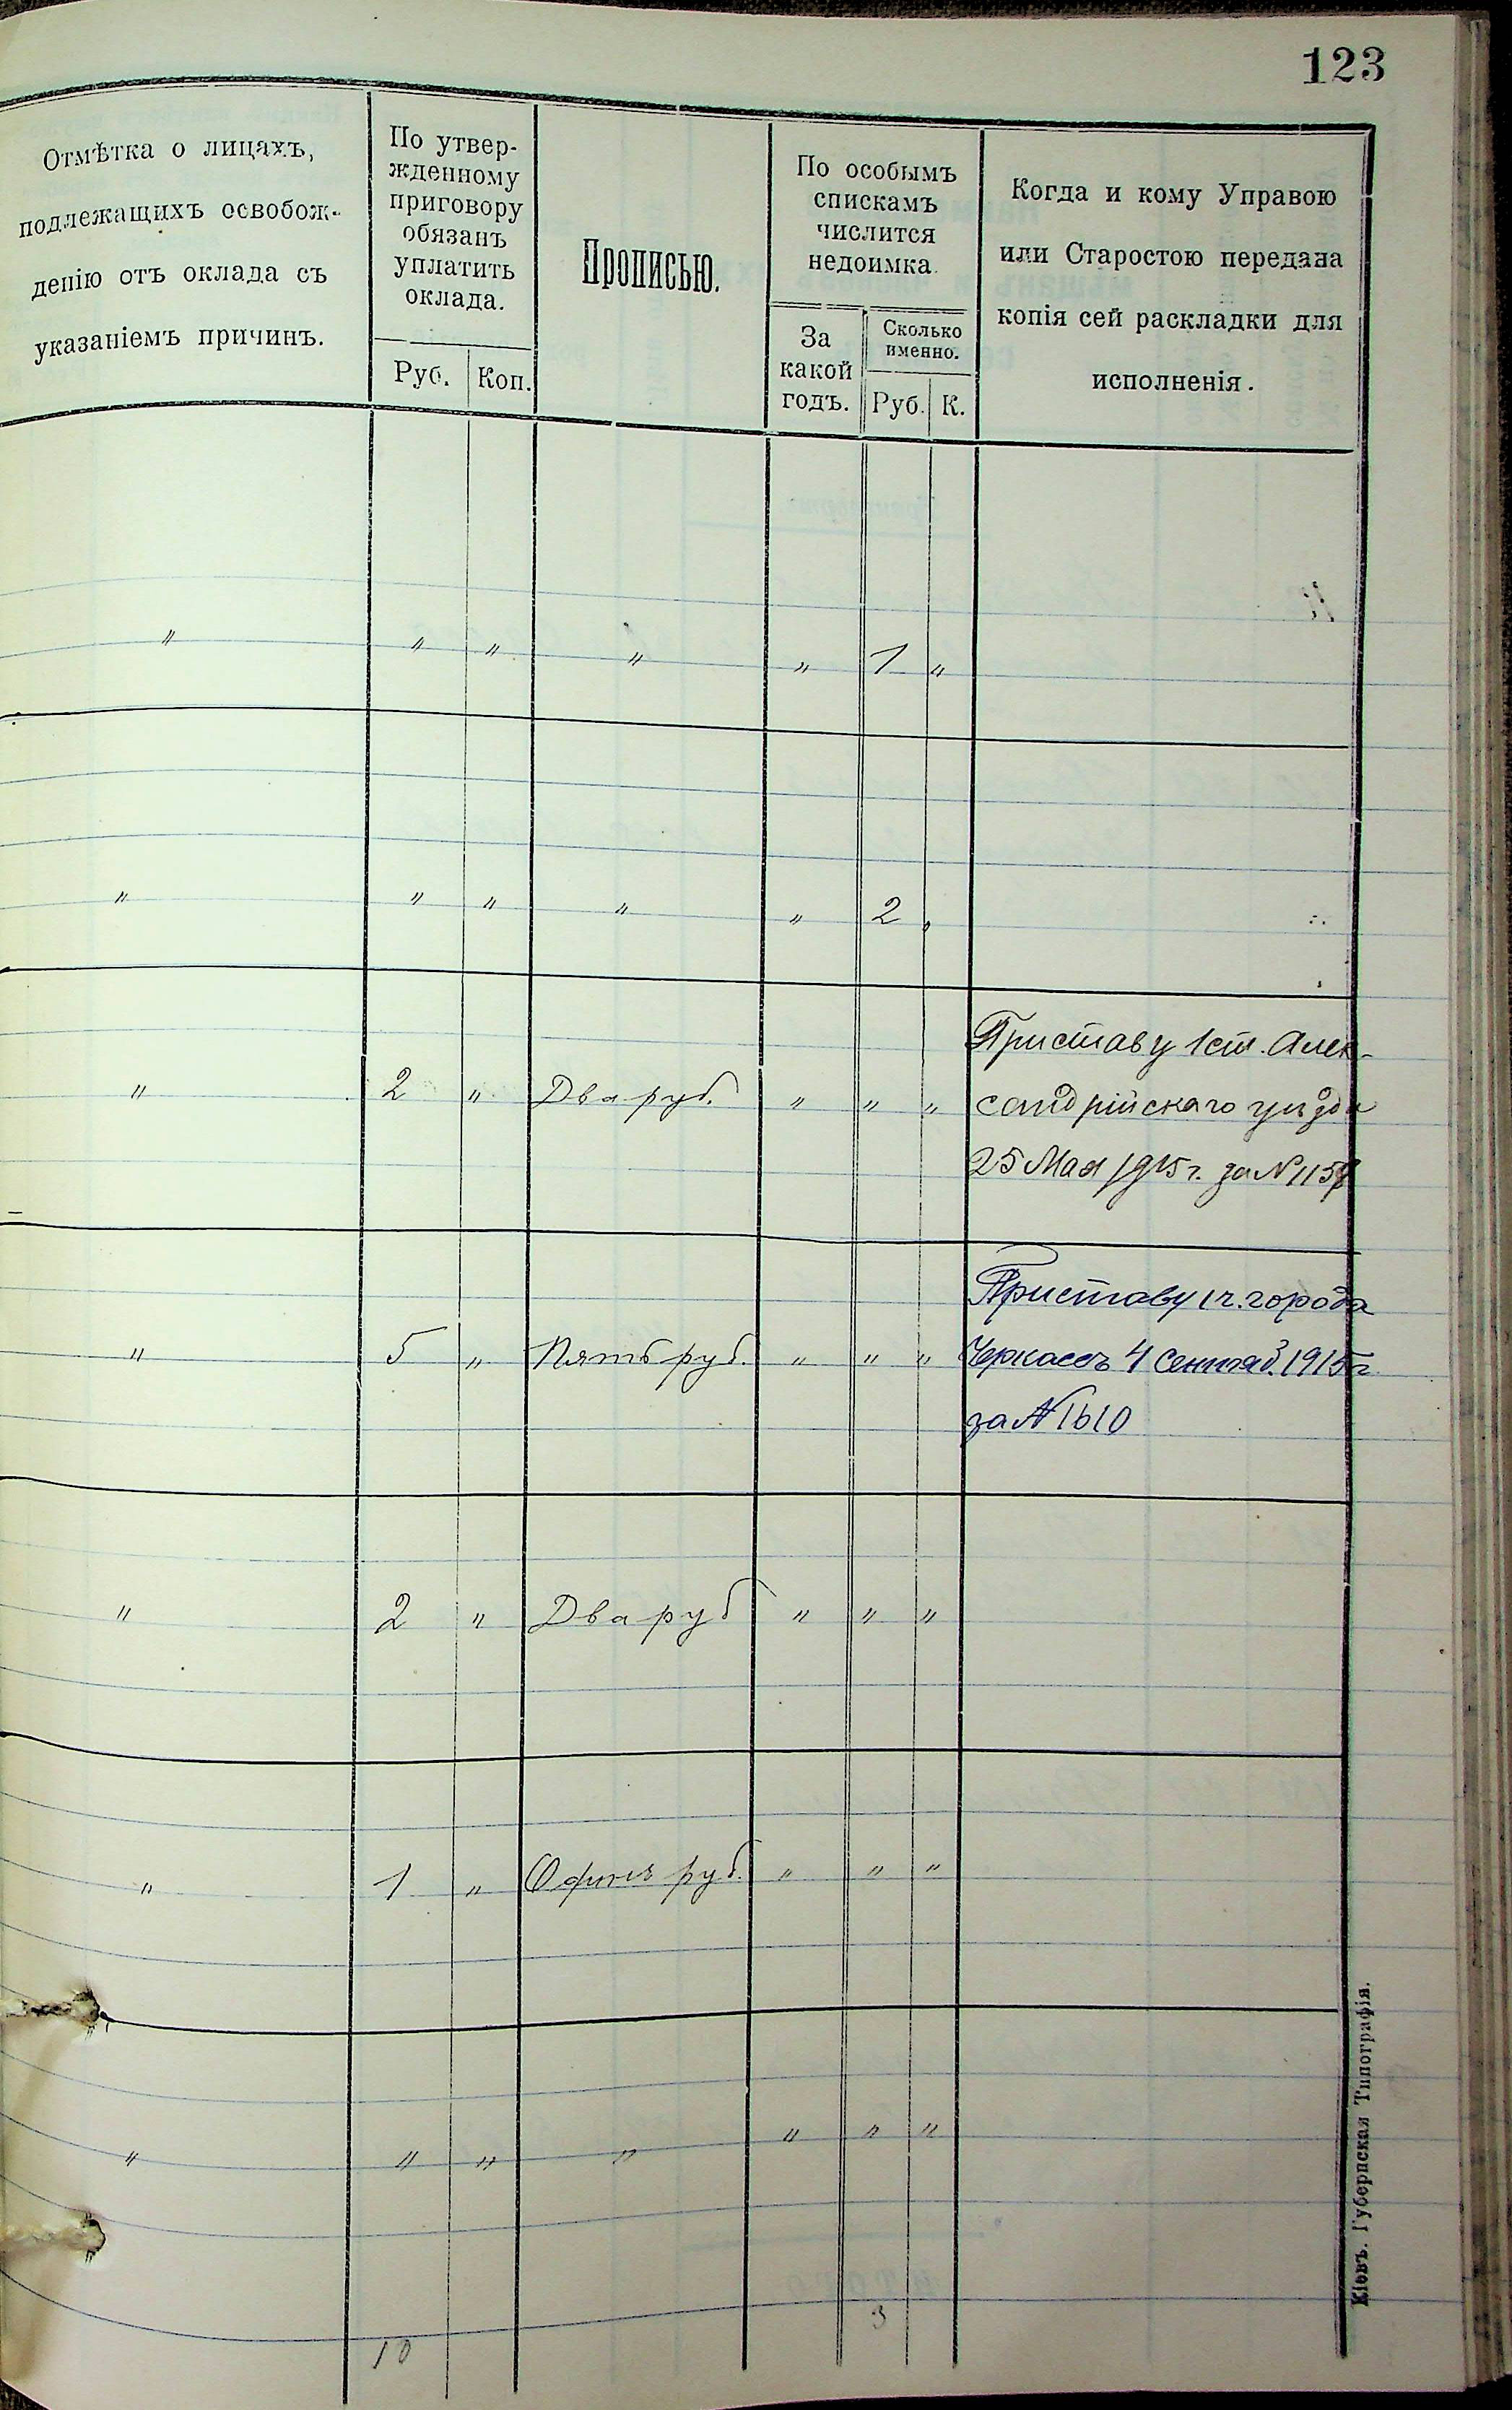 123
Отмѣтка о лицахъ,
подлежащихъ освобож-
денію отъ оклада съ
указаніемъ причинъ.
По утвер-
жденному
приговору
обязанъ
уплатить
оклада.
Руб. Коп.
Прописью.
По особымъ
спискамъ
числится
недоимка.
За
какой
годъ.
Сколько
именно.
Руб. К.
Когда и кому Управою
или Старостою передана
копія сей раскладки для
исполненія.
" " " " " 1 "
" " " " " 2 "
" 2 " Два руб. " " "
Приставу 1 ст. Алек-
сандрійскаго уѣзда
25 Мая 1915 г. за №
" 5 " Пять руб. " " "
Приставу 1 ч. города
Черкассъ 4 Сентяб. 1915 г.
за № 1610
" 2 " Два руб " " "
" 1 " Одинъ руб. " " "
" " " " " " "
10 3
Кіевъ. Губернская Типографія.